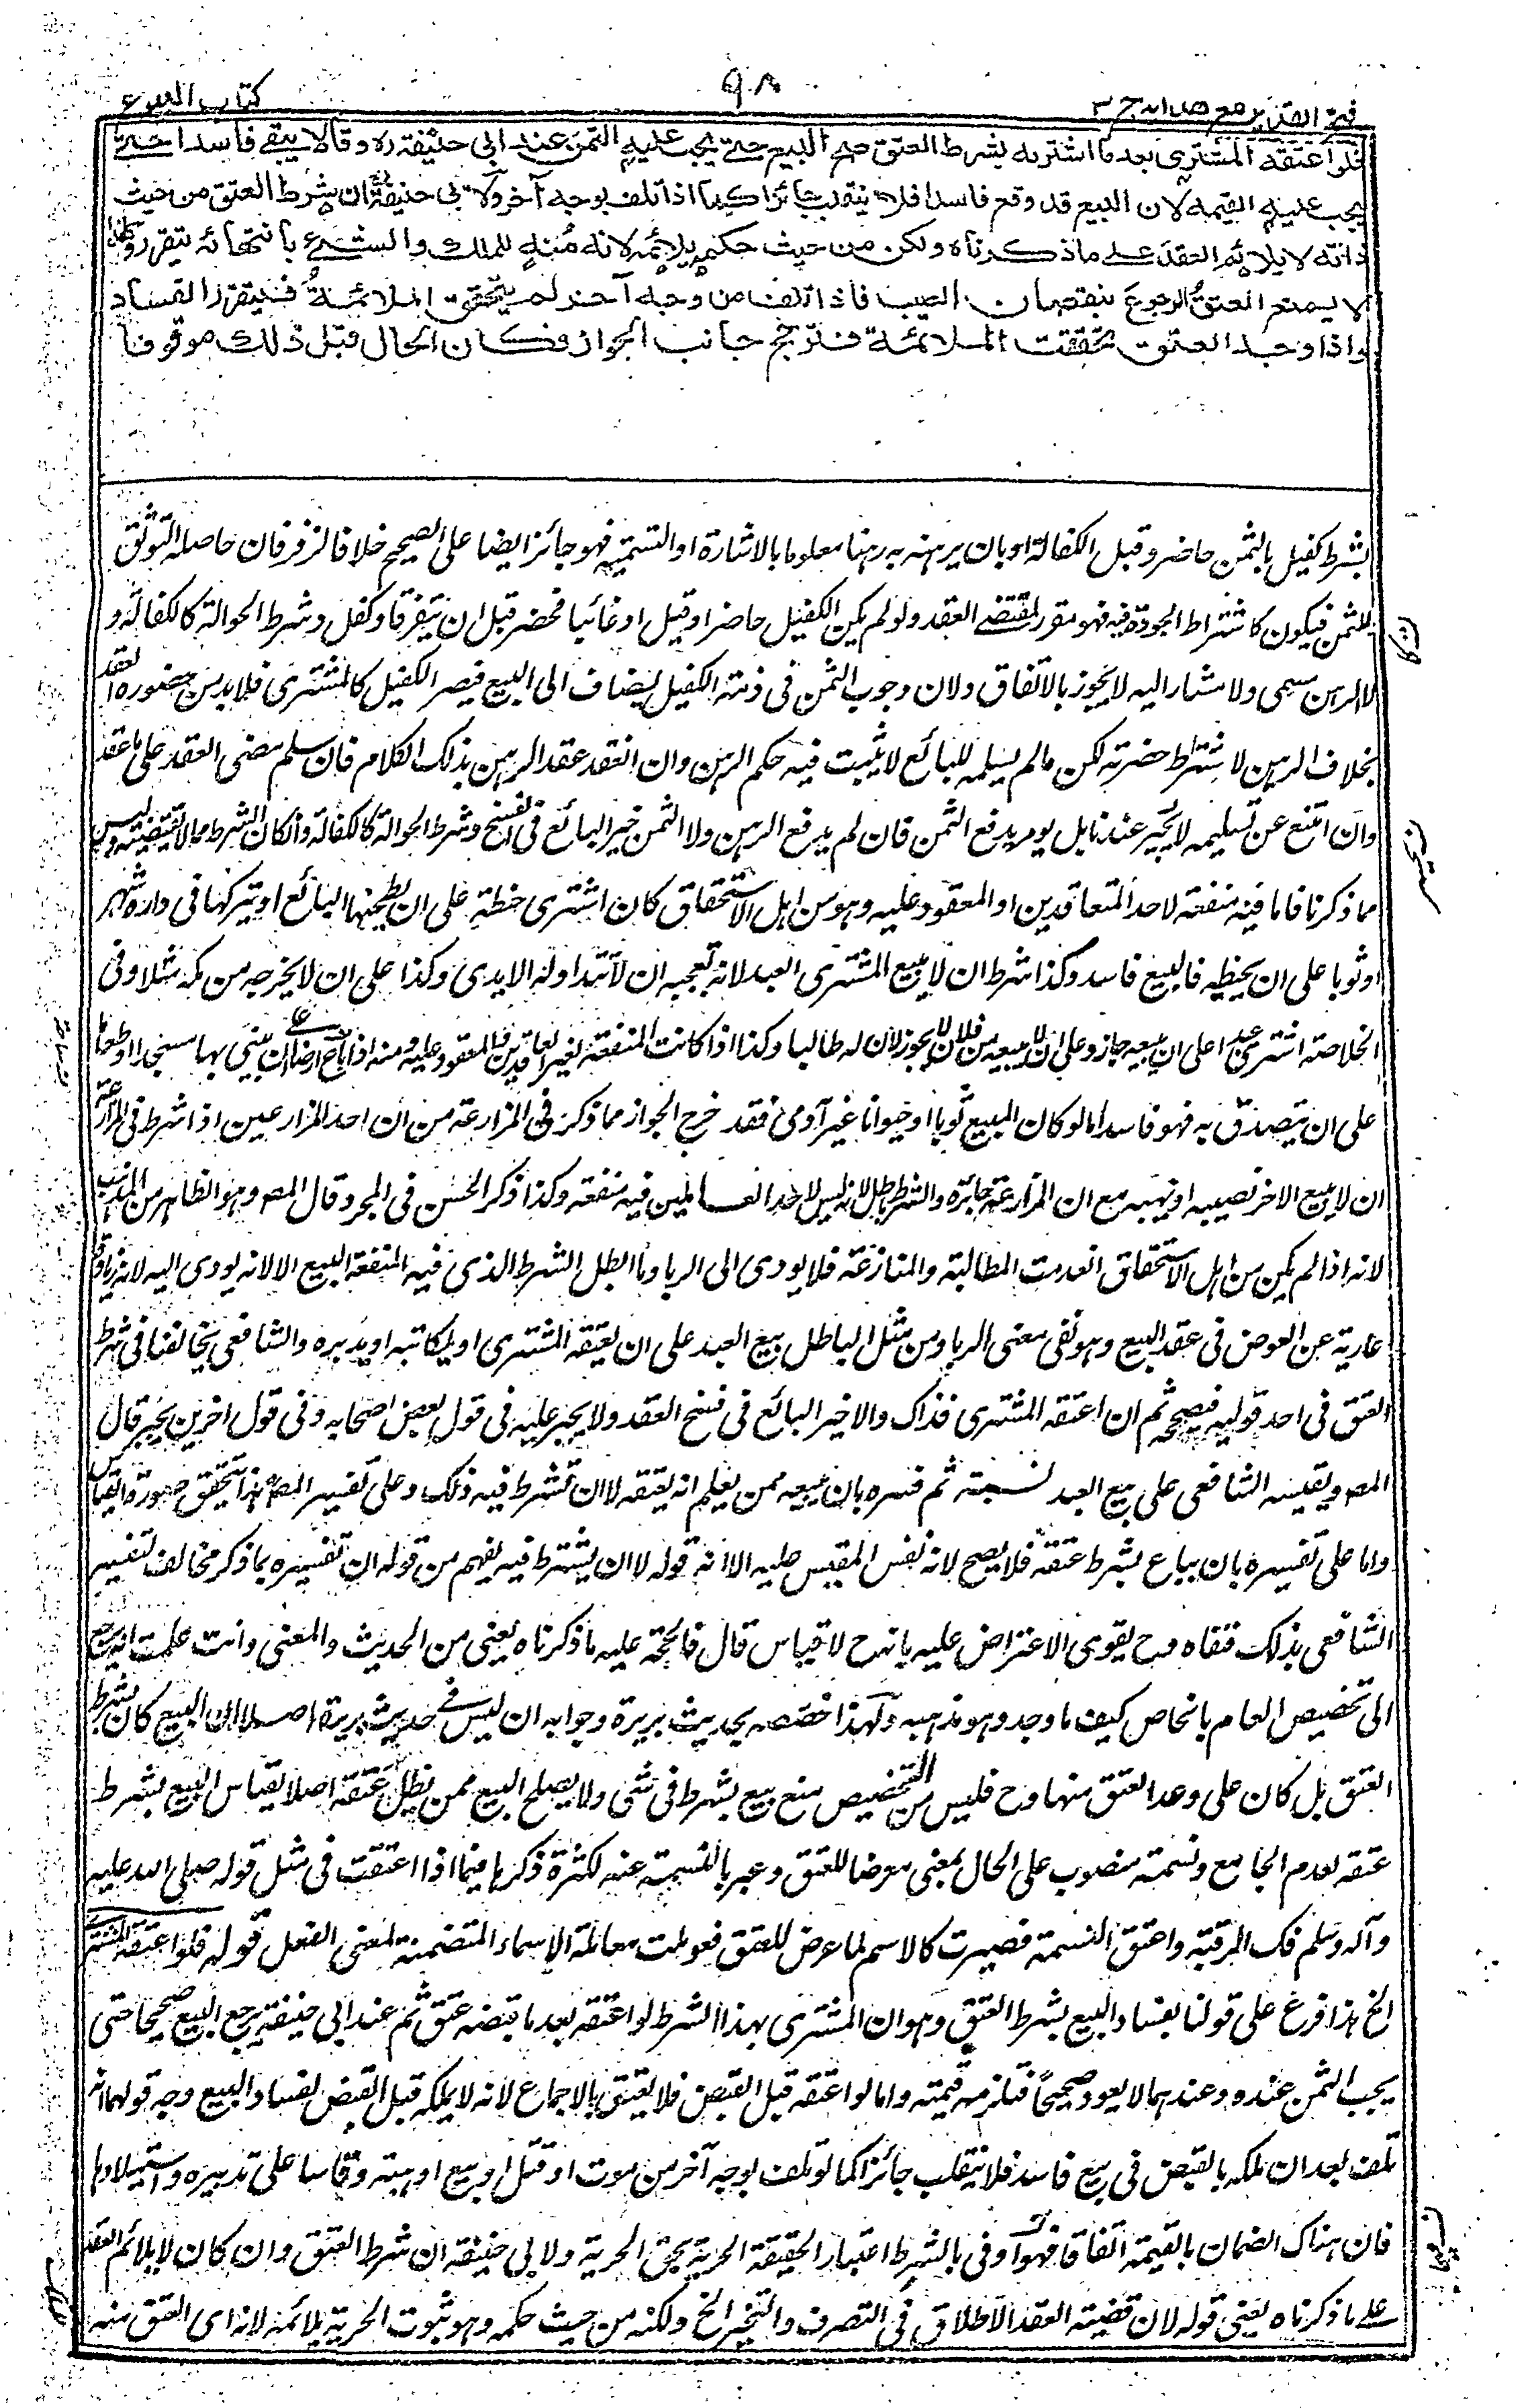 ٩٨
فتح القدير مع هدايه ج ٣
كتاب البيوع
فلو اعتقه المشترى بعد ما اشتراه بشرط العتق صح البيع حتى يجب عليه الثمن عند ابى حنيفة ره وقالا يبقى فاسدا حتى
يجب عليه القيمة لان البيع قد وقع فاسدا فلا ينقلب جائزا كما اذا تلف بوجه آخر ولابى حنيفة ان شرط العتق من حيث
ذاته لا يلائم العقد على ما ذكرناه ولكن من حيث حكمه يلائمه لانه منه للملك والشىء بانتهائه يتقرر ولهذا
لا يمنع العتق الرجوع بنقصان العيب فاذا تلف من وجه آخر لم يتحقق الملائمة فيتقرر الفساد
واذا وجد العتق تحققت الملائمة فترجح جانب الجواز فكان الحال قبل ذلك موقوفا
بشرط كفيل بالثمن حاضر وقبل الكفالة او بان يرهنه به رهنا معلوما بالاشارة او التسمية فهو جائز ايضا على الصحيح خلافا لزفر فان حاصله التوثق
للثمن فيكون كاشتراط الجودة فيه فهو مقرر لمقتضى العقد ولو لم يكن الكفيل حاضرا وقبل او غائبا فحضر قبل ان يتفرقا وكفل وشرط الحوالة كالكفالة و
لا الرهن مسمى ولا مشار اليه لا يجوز بالاتفاق ولان وجوب الثمن فى ذمة الكفيل يضاف الى البيع فيصير الكفيل كالمشترى فلا بد من حضوره العقد
بخلاف الرهن لا يشترط حضرته لكن ما لم يسلمه للبائع لا يثبت فيه حكم الرهن وان انعقد عقد الرهن بذلك الكلام فان سلم مضى العقد على ما عقد
وان امتنع عن تسليمه لا يجبر عندنا بل يومر بدفع الثمن فان لم يدفع الرهن ولا الثمن خير البائع فى الفسخ وشرط الحوالة كالكفالة وان كان الشرط مما لا يقتضيه وليس
مما ذكرنا فاما فيه منفعة لاحد المتعاقدين او المعقود عليه وهو من اهل الاستحقاق كان اشترى حنطة على ان يطحنها البائع او يتركها فى داره شهر
او ثوبا على ان يخيطه فالبيع فاسد وكذا شرط ان لا يبيع المشترى العبد لانه يعجبه ان لا تتداوله الايدى وكذا على ان لا يخرجه من مكة مثلا وفى
الخلاصة اشترى عبدا على ان يبيعه جاز وعلى ان لا يبيعه من فلان لا يجوز لان له طالبا وكذا اذا كانت المنفعة لغير العاقدين والمعقود عليه ومنه اذا باع ارضا على ان يبنى بها مسجدا او طعاما
على ان يتصدق به فهو فاسد اما لو كان المبيع ثوبا او حيوانا غير آدمى فقد خرج الجواز مما ذكر فى المزارعة من ان احد المزارعين اذا شرط فى المزارعة
ان لا يبيع الاخر نصيبه او يهبه مع ان المزارعة جائزة والشرط باطل لانه ليس لاحد العاملين فيه منفعة وكذا ذكر الحسن فى المجرد قال المص وهو الظاهر من المذهب
لانه اذا لم يكن من اهل الاستحقاق انعدمت المطالبة والمنازعة فلا يودى الى الربا وما ابطل الشرط الذى فيه المنفعة البيع الا لانه يودى اليه لانه زيادة
عارية عن العوض فى عقد البيع وهو معنى الربا ومن مثل الباطل بيع العبد على ان يعتقه المشترى او يكاتبه او يدبره والشافعى يخالفنا فى شرط
العتق فى احد قوليه فيصححه ثم ان اعتقه المشترى فذاك والا خير البائع فى فسخ العقد ولا يجبر عليه فى قول بعض اصحابه وفى قول اخرين يجبر قال
المص ويقيسه الشافعى على بيع العبد نسمة ثم فسره بان يبيعه ممن يعلم انه يعتقه لا ان يشترط فيه ذلك وعلى تفسير المص هذا يتحقق صورة القياس
واما على تفسيره بان يباع بشرط عتقه فلا يصح لانه نفس المقيس عليه الا انه قوله لا ان يشترط فيه يفهم من قوله ان تفسيره بما ذكر مخالف لتفسير
الشافعى بذلك فنفاه وح يقوى الاعتراض عليه بانه ح لا قياس قال فالحجة عليه ما ذكرناه يعنى من الحديث والمعنى وانت علمت انه يرجع
الى تخصيص العام بالخاص كيف ما وجد وهو مذهبه ولهذا خصصه بحديث بريرة وجوابه ان ليس فى حديث بريرة اصلا ان البيع كان بشرط
العتق بل كان على وعد العتق منها وح فليس من التخصيص منع بيع بشرط فى شى ولا يصلح البيع ممن يظن عتقه اصلا يقاس البيع بشرط
عتقه لعدم الجامع ونسمة منصوب على الحال بمعنى معرضا للعتق وعبر بالنسمة عنه لكثرة ذكرها فيما اذا اعتقت فى مثل قوله صلى الله عليه
وآله وسلم فك الرقبة واعتق النسمة فصيرت كالاسم لما عرض للعتق فعوملت معاملة الاسماء المتضمنة لمعنى الفعل قوله فلو اعتقه المشترى
الخ هذا فرغ على قولنا بفساد البيع بشرط العتق وهو ان المشترى بهذا الشرط لو اعتقه بعد ما قبضه عتق ثم عند ابى حنيفة يرجع البيع صحيحا حتى
يجب الثمن عنده وعندهما لا يعود صحيحا فتلزمه قيمته واما لو اعتقه قبل القبض فلا يعتق بالاجماع لانه لا يملكه قبل القبض لفساد البيع وجه قولهما انه
تلف بعد ان ملكه بالقبض فى بيع فاسد فلا ينقلب جائزا كما لو تلف بوجه آخر من موت او قتل او بيع او هبة وقاسا على تدبيره واستيلادها
فان هناك الضمان بالقيمة اتفاقا فهو اوفى بالشرط اعتبارا لحقيقة الحرية بحق الحرية ولابى حنيفة ان شرط العتق وان كان لا يلائم العقد
على ما ذكرناه يعنى قوله لان قضية العقد الاطلاق فى التصرف والتخيير الخ ولكنه من حيث حكمه وهو ثبوت الحرية يلائمه لانه اى العتق منه